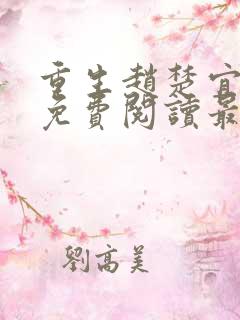 重生趙楚宜
免費閱讀最
劉高美